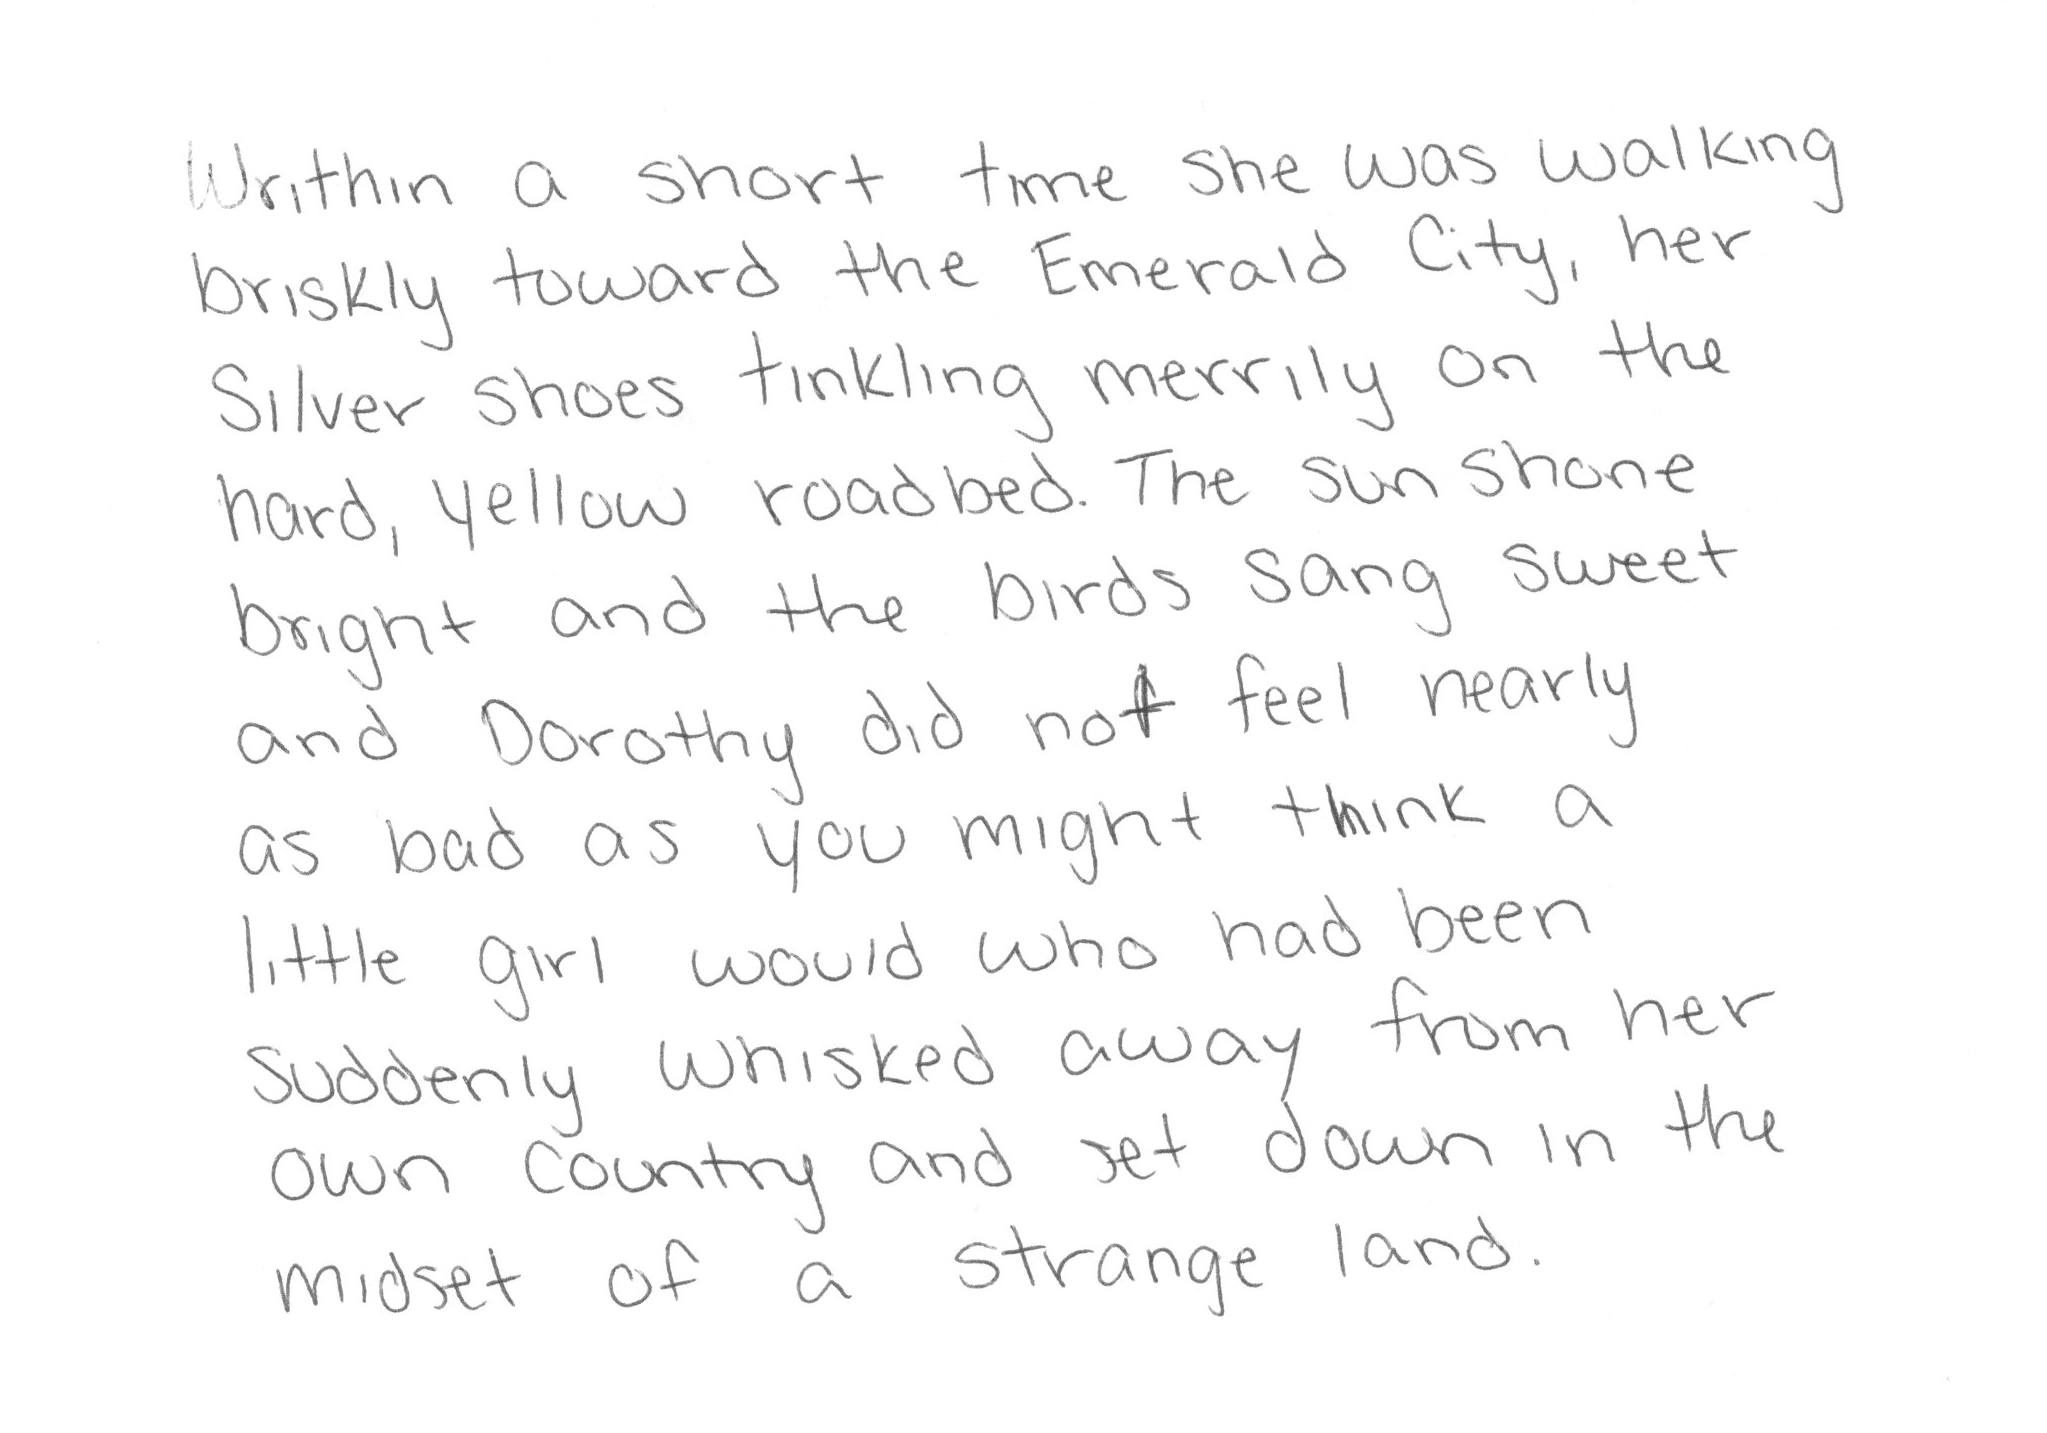 Writhin a short time she was walking
briskly toward the Emerald City, her
Silver shoes tinkling merrily on the
hard, yellow roadbed. The sun shone
bright and the birds sang sweet
and Dorothy did not feel nearly
as bad as you might think a
little girl would who had been
suddenly whisked away from her
own country and set down in the
midset of a strange land.